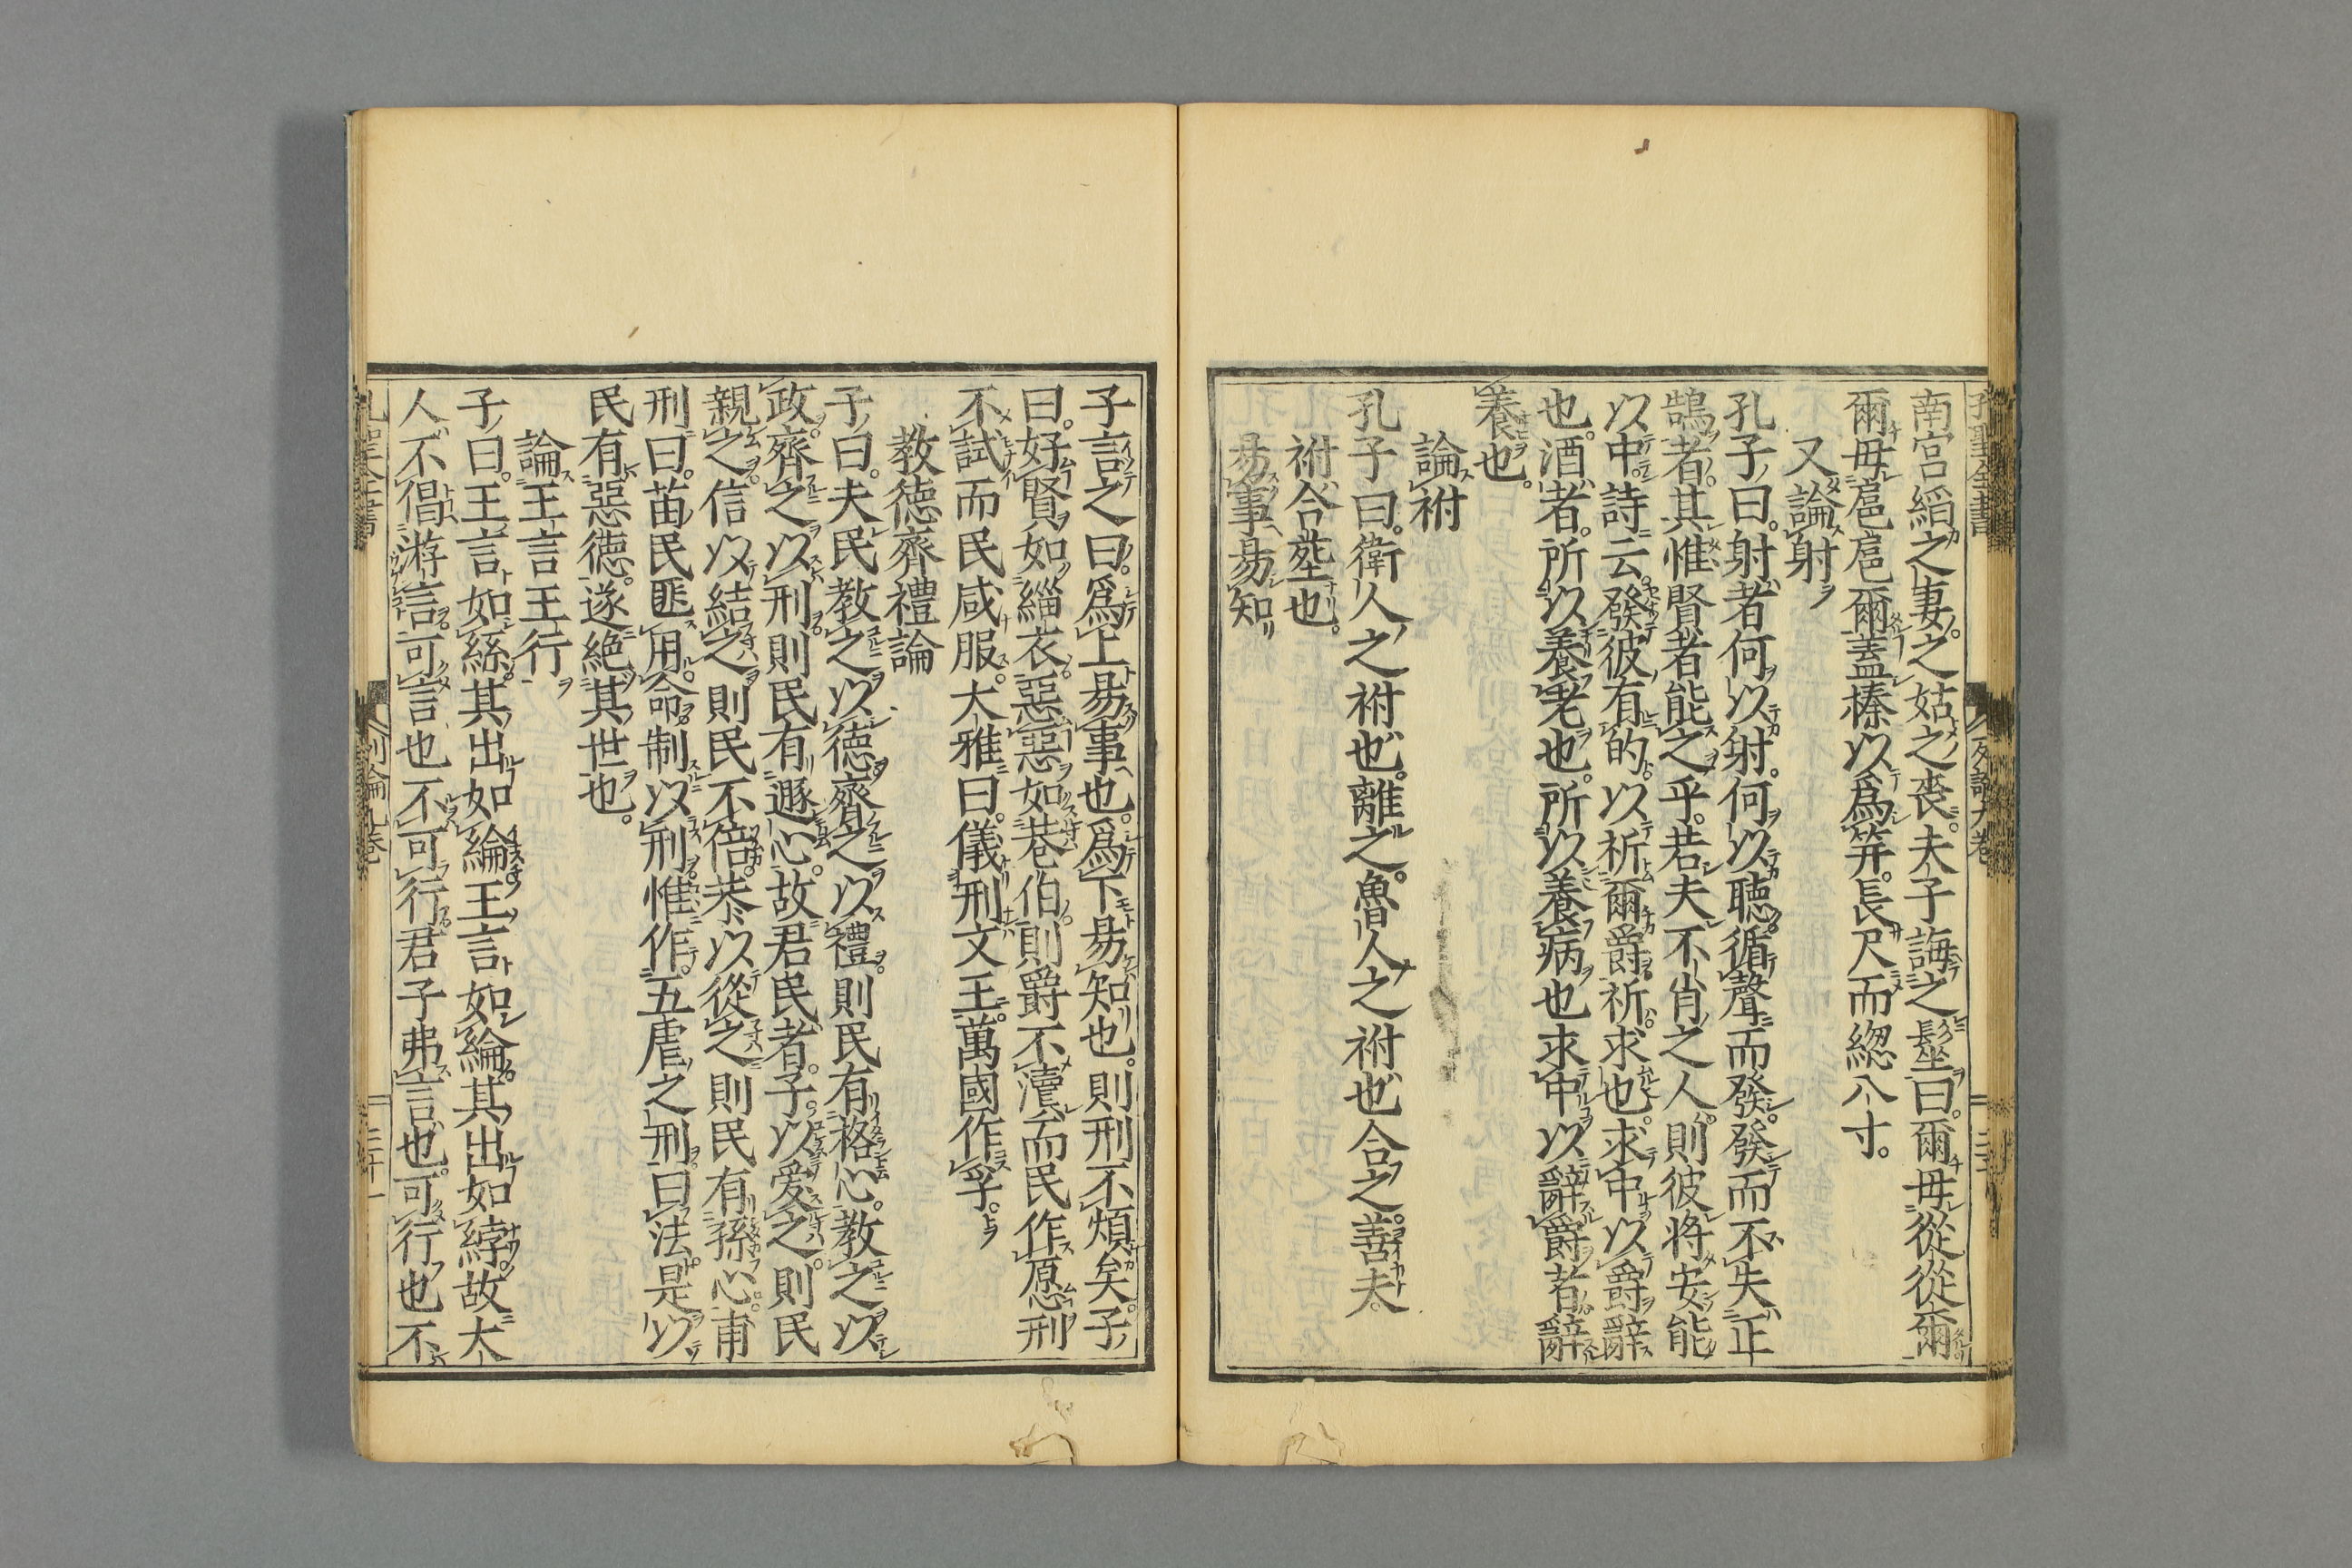 南宮縚之妻之姑之喪。夫子誨之髽曰。爾毋從從爾
爾毋扈扈爾蓋榛以爲笄。長尺而緫八寸。
又論射
孔子曰。射者何以射。何以聴。循聲而發。發而不失正
鵠者。其惟賢者能之乎。若夫不肖之人。則彼將安能
以中。詩云。發彼有的。以祈爾爵。祈求也。求中以爵辭
也。酒者。所以養老也。所以養病也求中以辭爵者。辭
養也。
論祔
孔子曰。衛人之祔也。離之。魯人之祔也合之。善夫。
祔合塟也。
易事易知
子言之曰。爲上易事也。爲下易知也。則刑不煩矣。子
曰。好賢如緇衣。惡惡如巷伯。則爵不瀆。而民作愿刑
不試而民咸服。大雅曰。儀刑文王。萬國作孚。
教徳齊禮論
子曰。夫民教之以徳。齊之以禮。則民有格心。教之以
政。齊之以刑。則民有遯心。故君民者。子以愛之。則民
親之。信以結之。則民不倍。恭以從之。則民有孫心。甫
刑曰。苗民匪用命。制以刑。惟作五虐之刑曰法。是以
民有惡徳。遂絶其世也。
論王言王行
子曰。王言如絲。其出如綸。王言如綸。其出如綍。故大
人不倡游言。可言也不可行。君子弗言也。可行也不